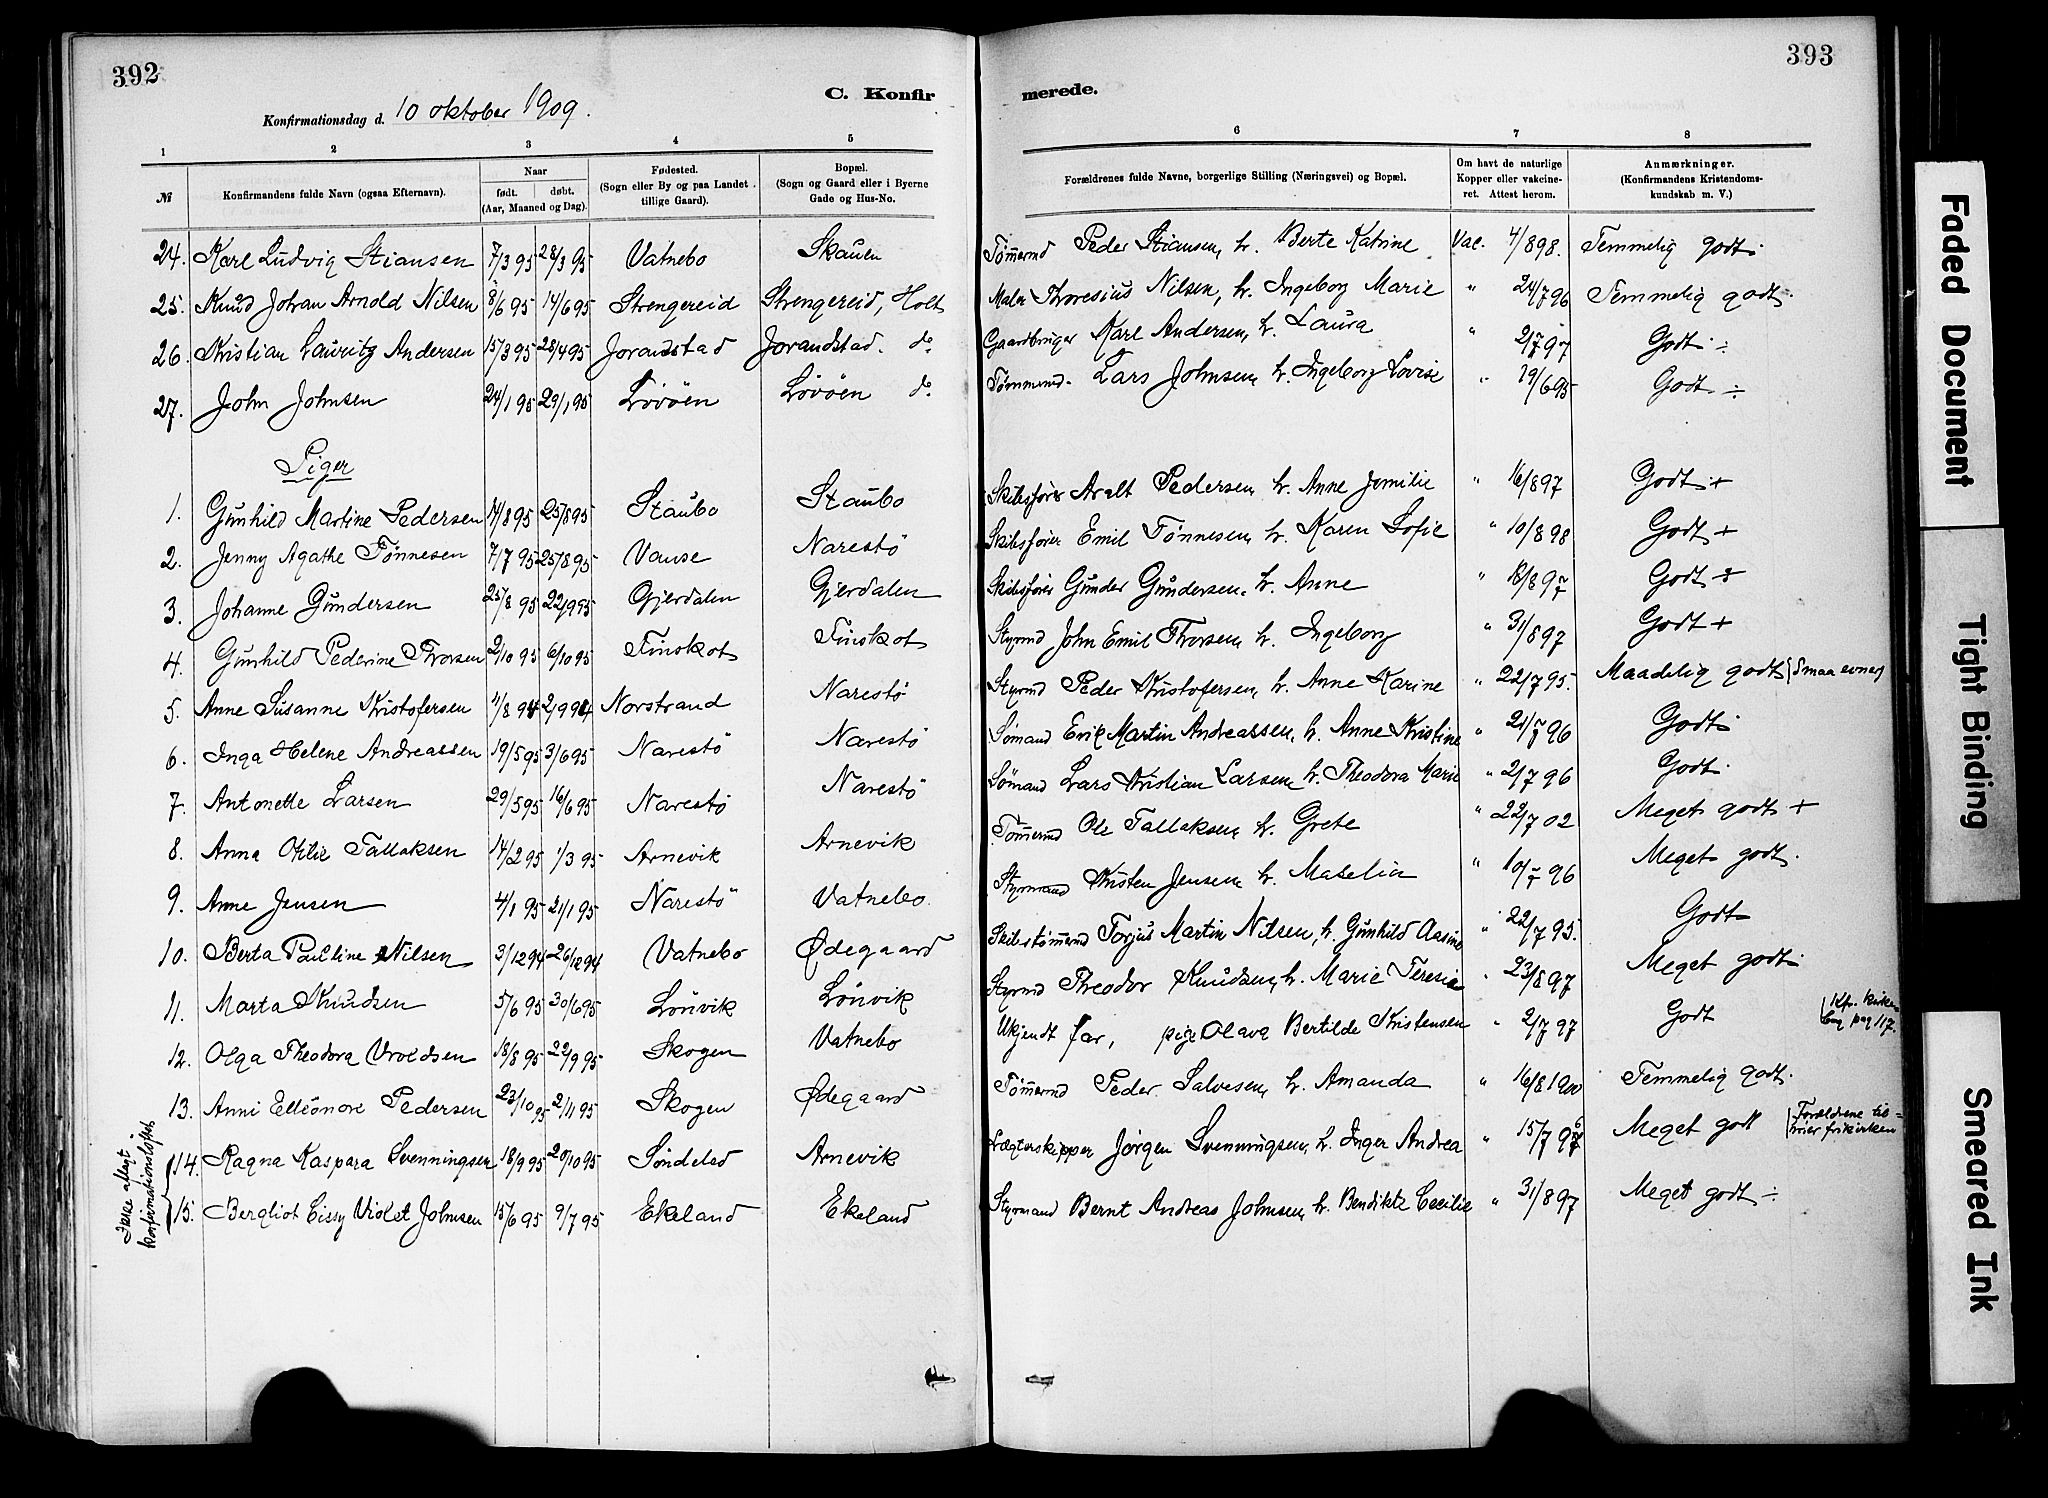 392
393
C. Konfirmerede.
Konfirmationsdag d. 10 oktober 1909.
1 2 3 4 5 6 7 8
№ Konfirmandens fulde Navn (ogsaa Efternavn). Naar født. døbt. (Aar, Maaned og Dag). Fødested. (Sogn eller By og paa Landet tillige Gaard). Bopæl. (Sogn og Gaard eller i Byerne Gade og Hus-No. Forældrenes fulde Navne, borgerlige Stilling (Næringsvei) og Bopæl. Om havt de naturlige Kopper eller vakcineret. Attest herom. Anmærkninger. (Konfirmandens Kristendomskundskab m. V.)
24. Karl Ludvig Stiansen 7/3 95 28/3 95 Vatnebo Skauen Tømmermd Peder Stiansen, h. Berte Katrine Vac. 4/8 98. Temmelig godt.
25. Knud Johan Arnold Nilsen 8/6 95 14/6 95 Strengereid Strengereid, Holt Maler Thoresius Nilsen, h. Ingeborg Marie " 24/7 96 Temmelig godt.
26. Kristian Lauritz Andersen 15/3 95 28/4 95 Jorandstad Jorandstad. do Gaardbruger Karl Andersen, h. Laura " 2/7 97 Godt ÷
27. John Johnsen 24/1 95 29/1 95 Løvøen Løvøen do Tømmermd. Lars Johnsen, h. Ingeborg Lovise " 19/6 95 Godt. ÷
Piger
1. Gunhild Martine Pedersen 14/8 95 25/8 95 Staubo Staubo Skibsfører Aralt Pedersen, h. Anne Jemilie " 16/8 97 Godt +
2. Jenny Agathe Tønnesen 7/7 95 25/8 95 Vanse Narestö Skibsfører Emil Tønnesen, h. Karen Sofie " 10/8 98 Godt +
3. Johanne Gundersen 25/8 95 22/9 95 Gjerdalen Gjerdalen Skibsfører Gunder Gundersen, h. Anne " 18/8 97 Godt +
4. Gunhild Pederine Thorsen 2/10 95 6/10 95 Finskot Finskot Styrmd John Emil Thorsen, h. Ingeborg " 31/8 97 Godt +
5. Anne Susanne Kristofersen 4/8 94 2/9 94 Norstrand Narestö Styrmd Peder Kristofersen, h. Anne Karine " 22/7 95. Maadelig godt (Smaa evner)
6. Inga Helene Andreassen 19/5 95 3/6 95 Narestö Narestö Sømand Erik Martin Andreassen, h. Anne Kristine " 21/7 96 Godt.
7. Antonette Larsen 29/5 95 16/6 95 Narestö Narestö Sømand Lars Kristian Larsen, h. Theodora Marie " 2/7 96 Godt.
8. Anna Otilie Tallaksen 14/2 95 1/3 95 Arnevik Arnevik Tømmermd Ole Tallaksen, h. Grete " 22/7 02 Meget godt +
9. Anne Jensen 4/1 95 21/1 95 Narestö Vatnebo Styrmand Kristen Jensen, h. Maselia " 10/7 96 Meget godt.
10. Berta Pauline Nilsen 3/12 94 26/12 94 Vatnebo Ødegaard Skibstømmermd Torjus Martin Nilsen, h. Gunhild Aasine " 22/7 95. Godt
11. Marta Knudsen 5/6 95 30/6 95 Lönvik Lönvik Styrmd Theodor Knudsen, h. Marie Teresie " 23/8 97 Meget godt.
12. Olga Theodora Vroldsen 18/8 95 22/9 95 Skogen Vatnebo Ukjendt far, pige Olava Bertilde Kristensen " 2/7 97 Godt (Kfr. kirkebog pag 117.
13. Anni Elleonore Pedersen 23/10 95 2/11 95 Skogen Ødegaard Tømmermd Peder Salvesen, h. Amanda " 16/8 1900 Temmelig godt.
14. Ragna Kaspara Svenningsen 18/9 95 20/10 95 Søndeled Arnevik Lægterskipper Jørgen Svenningsen, h. Inger Andrea " 15/7 97 Meget godt (Forældrene tilhører frikirken
15. Bergliot Cissy Violet Johnsen 15/6 95 9/7 95 Ekeland Ekeland Styrmand Bernt Andreas Johnsen, h. Bendikte Cecilie " 31/8 97 Meget godt ÷
aflagt konfirmationsløftet
Faded Document
Tight Binding
Smeared Ink